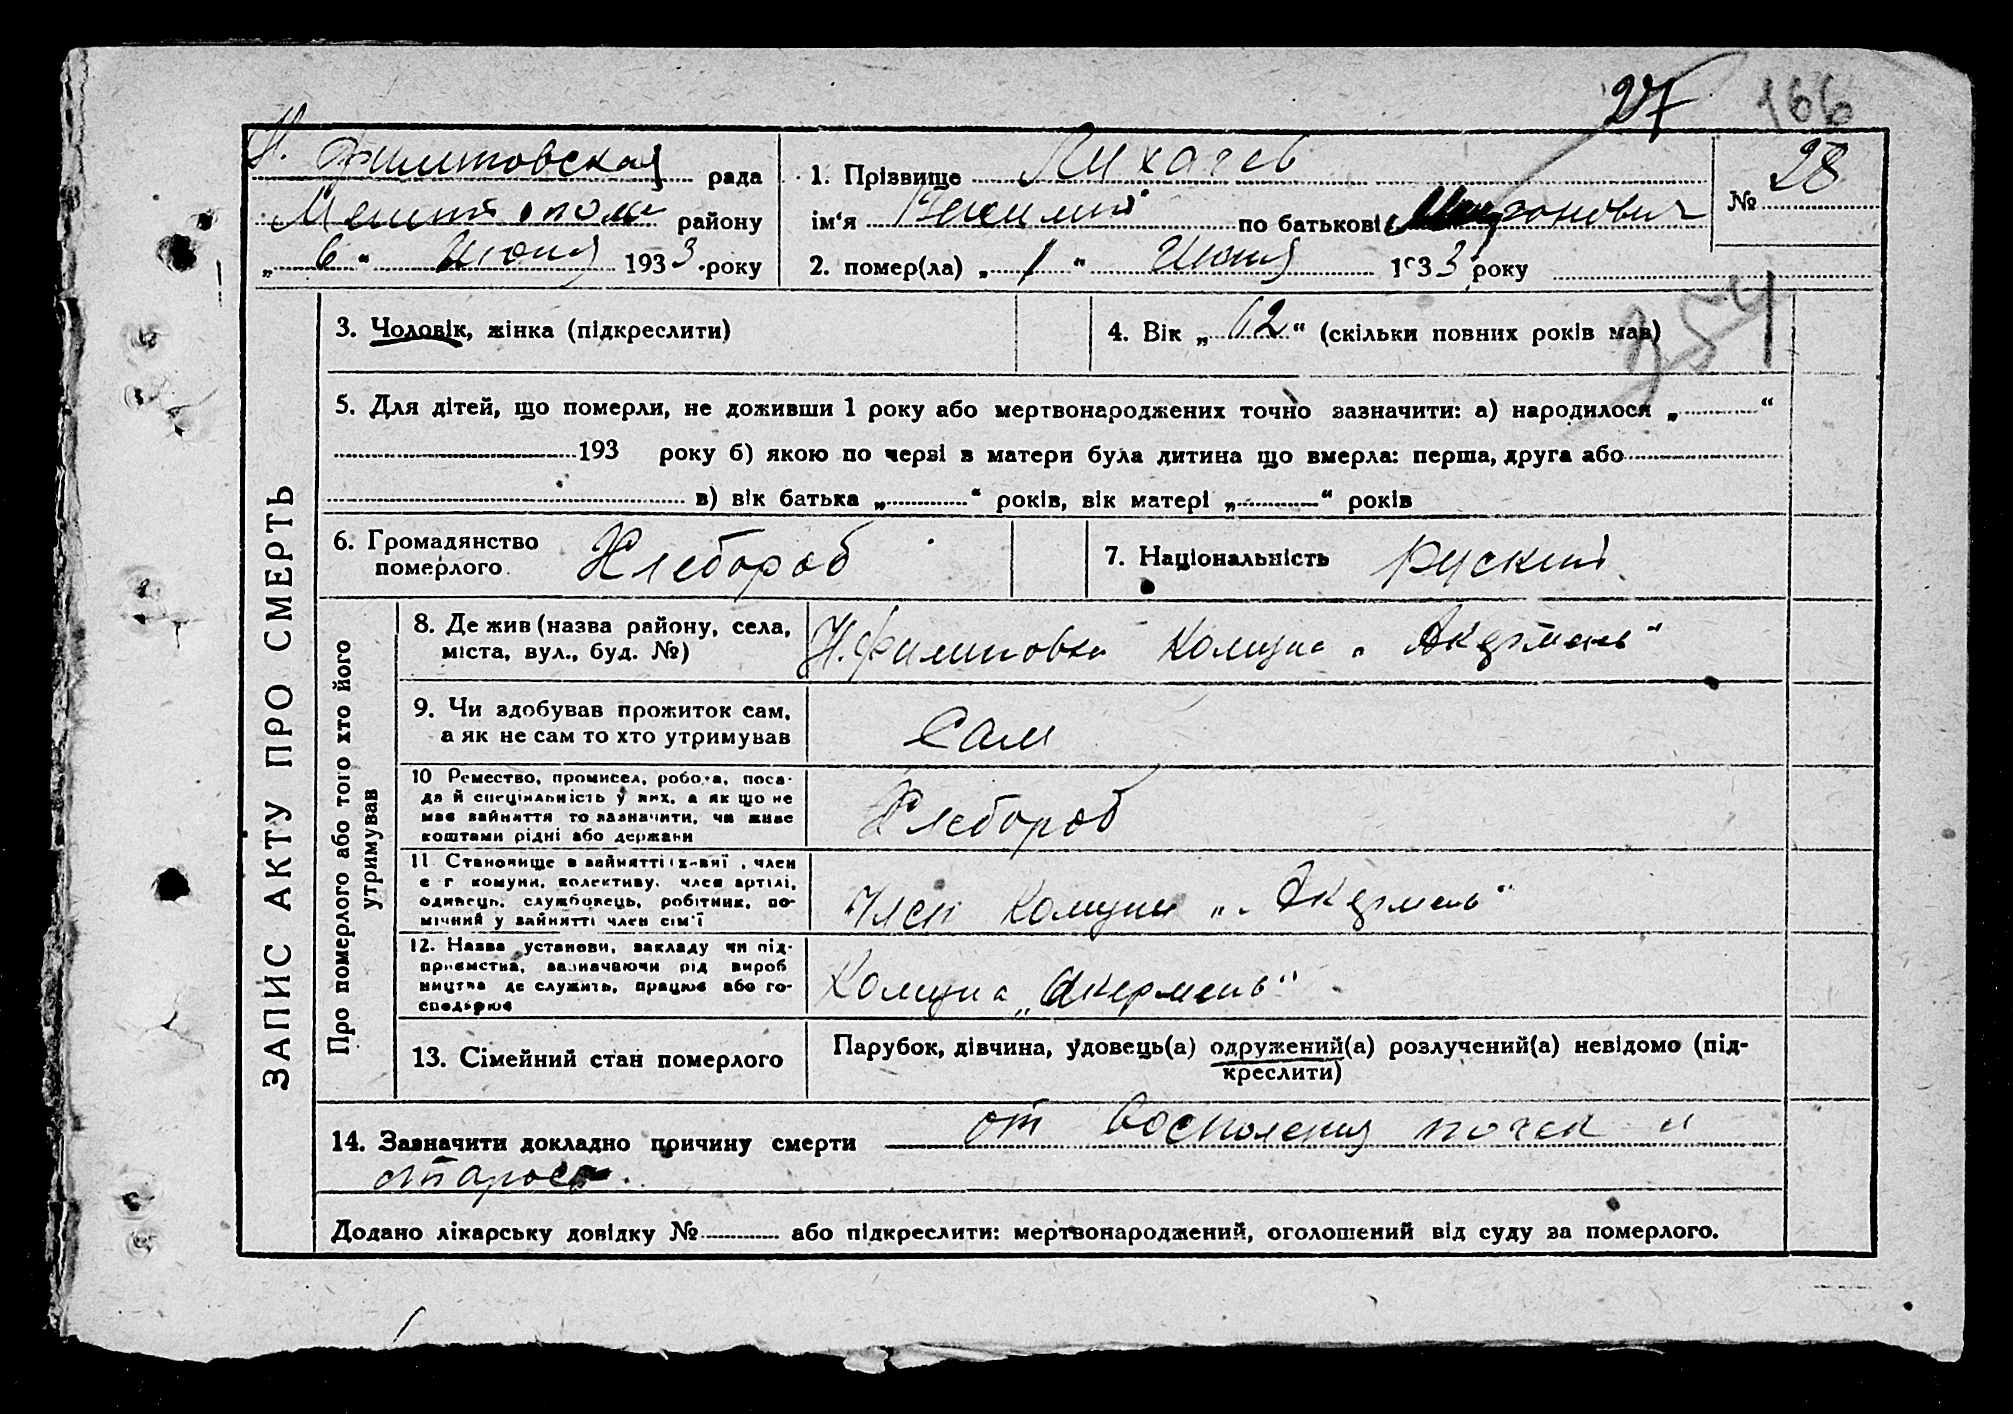 27 166
Н. Филиповская рада
1. Прізвище Лихачев
№ 28
района
району
ім'я по батькові
„ 6 “ Июня 1933 року
2. помер(ла) „ 1 “ Июня 1933 року
354
ЗАПИС АКТУ ПРО СМЕРТЬ
3. Чоловік, жінка (підкреслити)
4. Вік „ 62 “ (скільки повних років мав)
5. Для дітей, що померли, не доживши 1 року або мертвонароджених точно зазначити: а) народилося „ “
193 року б) якою по черзі в матери була дитина що вмерла: перша, друга або
в) вік батька „ “ років, вік матері „ “ років
6. Громадянство
померлого Хлебороб
7. Національність Руский
Про померлого або того хто його
утримував
8. Де жив (назва району, села,
міста, вул., буд. №)
Н. Филиповка Комуна „Акермень“
9. Чи здобував прожиток сам,
а як не сам то хто утримував
Сам
10 Ремество, промисел, робота, поса-
да й спеціяльність у них, а як що не
має зайняття то зазначити, чи живе
коштами рідні або держави
Хлебороб
11 Становище в зайнятті член
комуни, колективу, член артілі,
одинець, службовець, робітник, по-
мічний у зайнятті член сім'ї
Член Комуни „Акермень“
12. Назва установи, закладу чи під-
приємства, зазначаючи рід вироб
ництва де служить, працює або го-
сподарює
Комуна „Акермень“
13. Сімейний стан померлого
Парубок, дівчина, удовець(а) одружений(а) розлучений(а) невідомо (під-
креслити)
14. Зазначити докладно причину смерти от воспаления почек и
Додано лікарську довідку № або підкреслити: мертвонароджений, оголошений від суду за померлого.